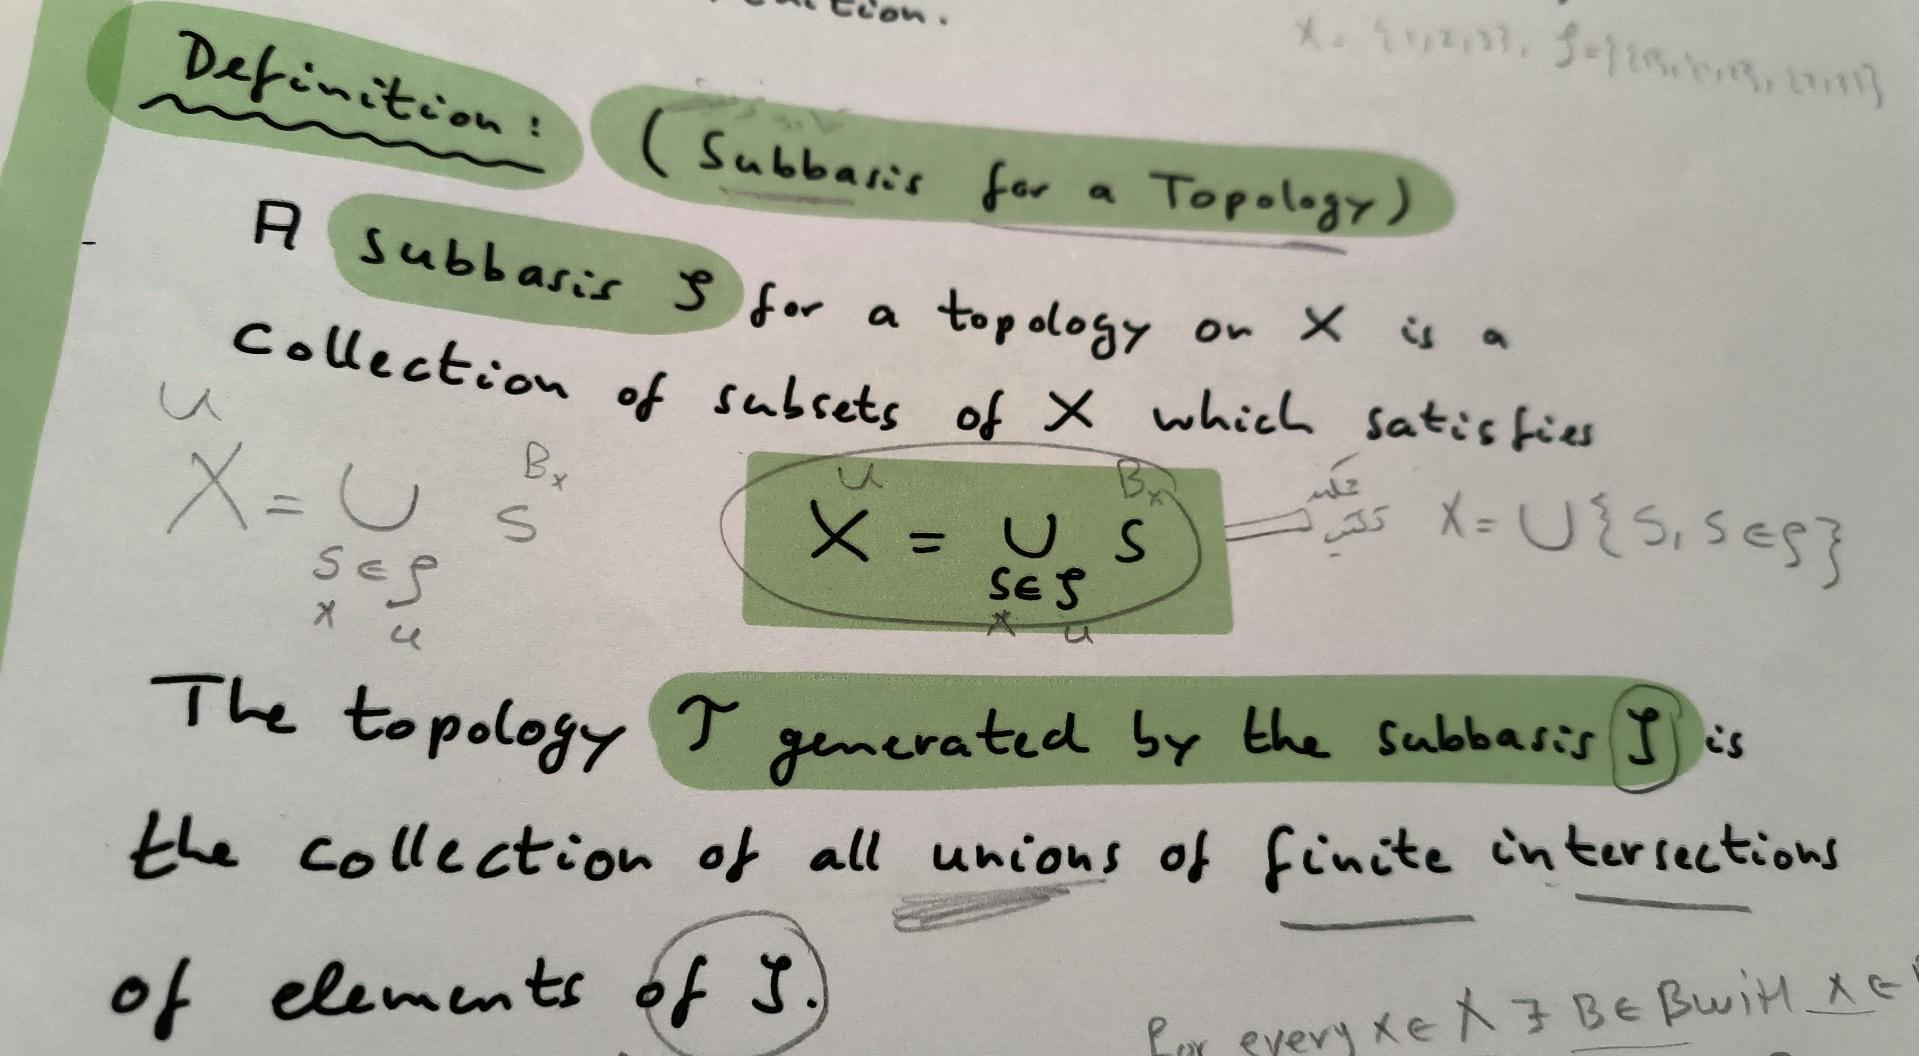 Definition: (Subbasis for a Topology)
A subbasis 𝒮 for a topology on X is a
Collection of subsets of X which satisfies
U
X = ∪ S Bx
S∈𝒮
x u
U Bx
X = ∪ S
S∈𝒮
x u
X = ∪{S, S∈𝒮}
The topology 𝒯 generated by the subbasis 𝒮 is
the collection of all unions of finite intersections
of elements of 𝒮.
For every x∈X ∃ B∈B with x∈